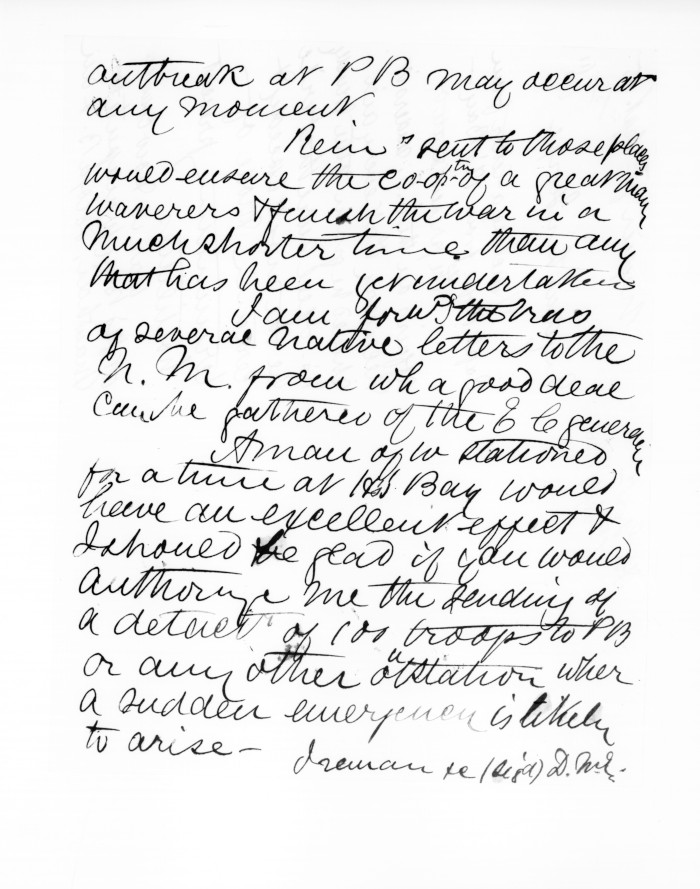 outbreak at P B may occur at
any moment
Rein^ts sent to those places
would ensure the co-op^tn of a great many
waverers & finish the war in a
much shorter time than any
that has been yet undertaken
I am forw^g the trans
of several native letters to the
N. M. from wh a good deal
can be gathered of the E C generally
A man of w stationed
for a time at Hs Bay would
have an excellent effect &
I should be glad if you would
authorize me the sending of
a detact of 100 troops to PB
or any other station wher
a sudden emergency is likely
to arise —
I remain &c (sigd) D. McL.